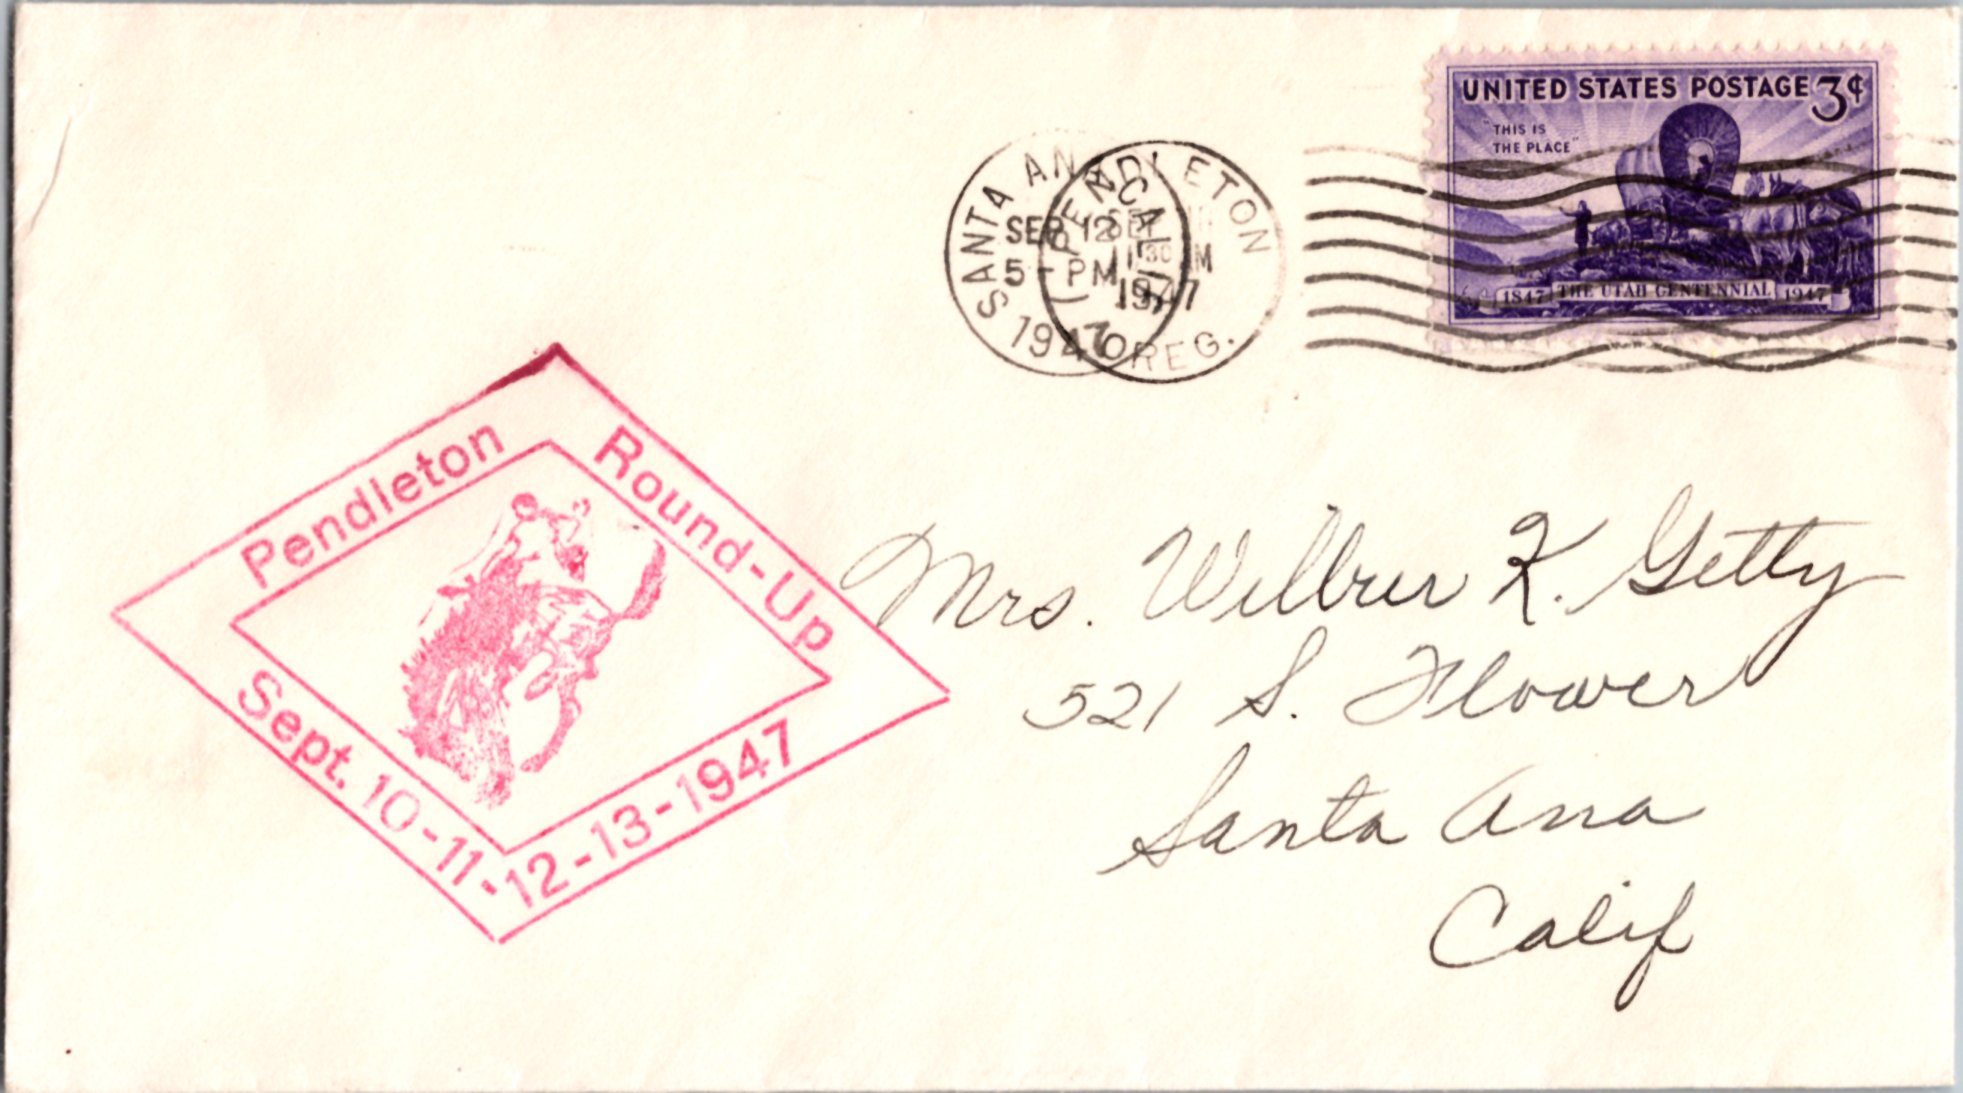 UNITED STATES POSTAGE 3¢
"THIS IS
THE PLACE"
1847 THE UTAH CENTENNIAL 1947
SANTA ANA CALIF
SEP 12
5 - PM
1947
PENDLETON
SEP
11 30 AM
1947
OREG.
Pendleton Round-Up
Sept. 10-11-12-13-1947
Mrs. Wilbur K. Getty
521 S. Flower
Santa Ana
Calif